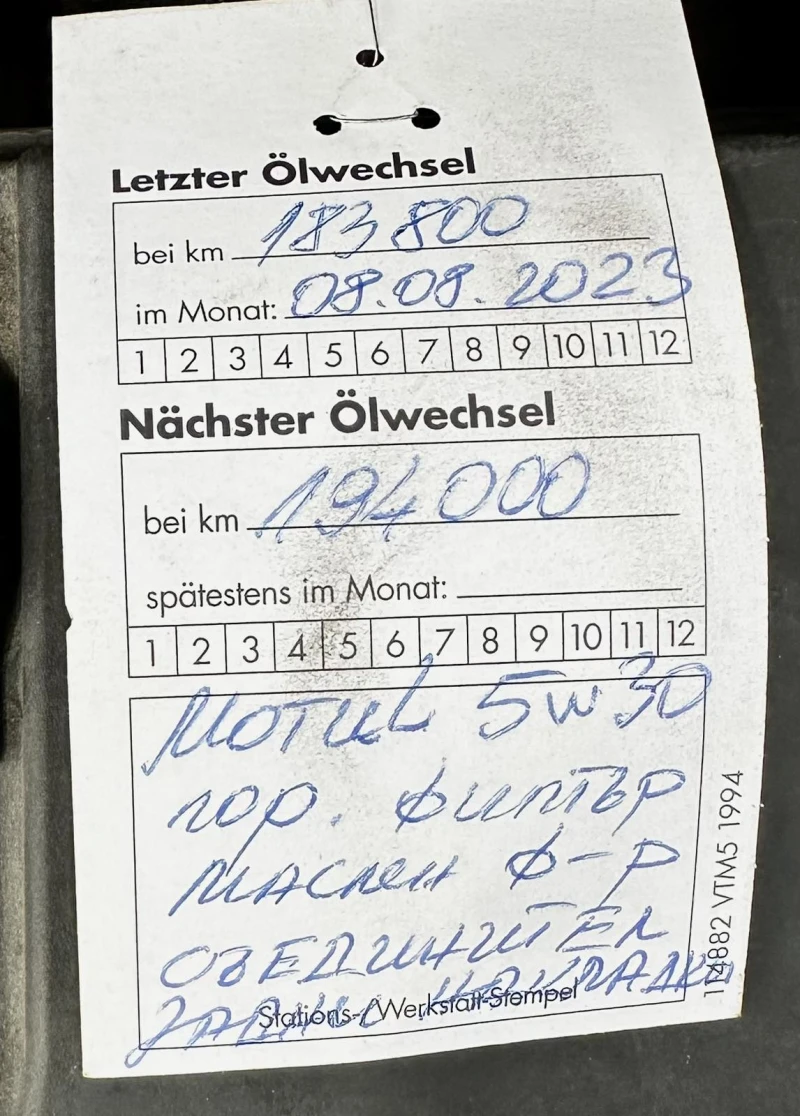 Letzter Ölwechsel
bei km 183 800
im Monat: 08.08.2023
1 2 3 4 5 6 7 8 9 10 11 12
Nächster Ölwechsel
bei km 194 000
spätestens im Monat:
1 2 3 4 5 6 7 8 9 10 11 12
Motul 5w30
гор. филтър
маслен ф-р
обединител
задно
Stations-/Werkstatt-Stempel
114882 VTM5 1994